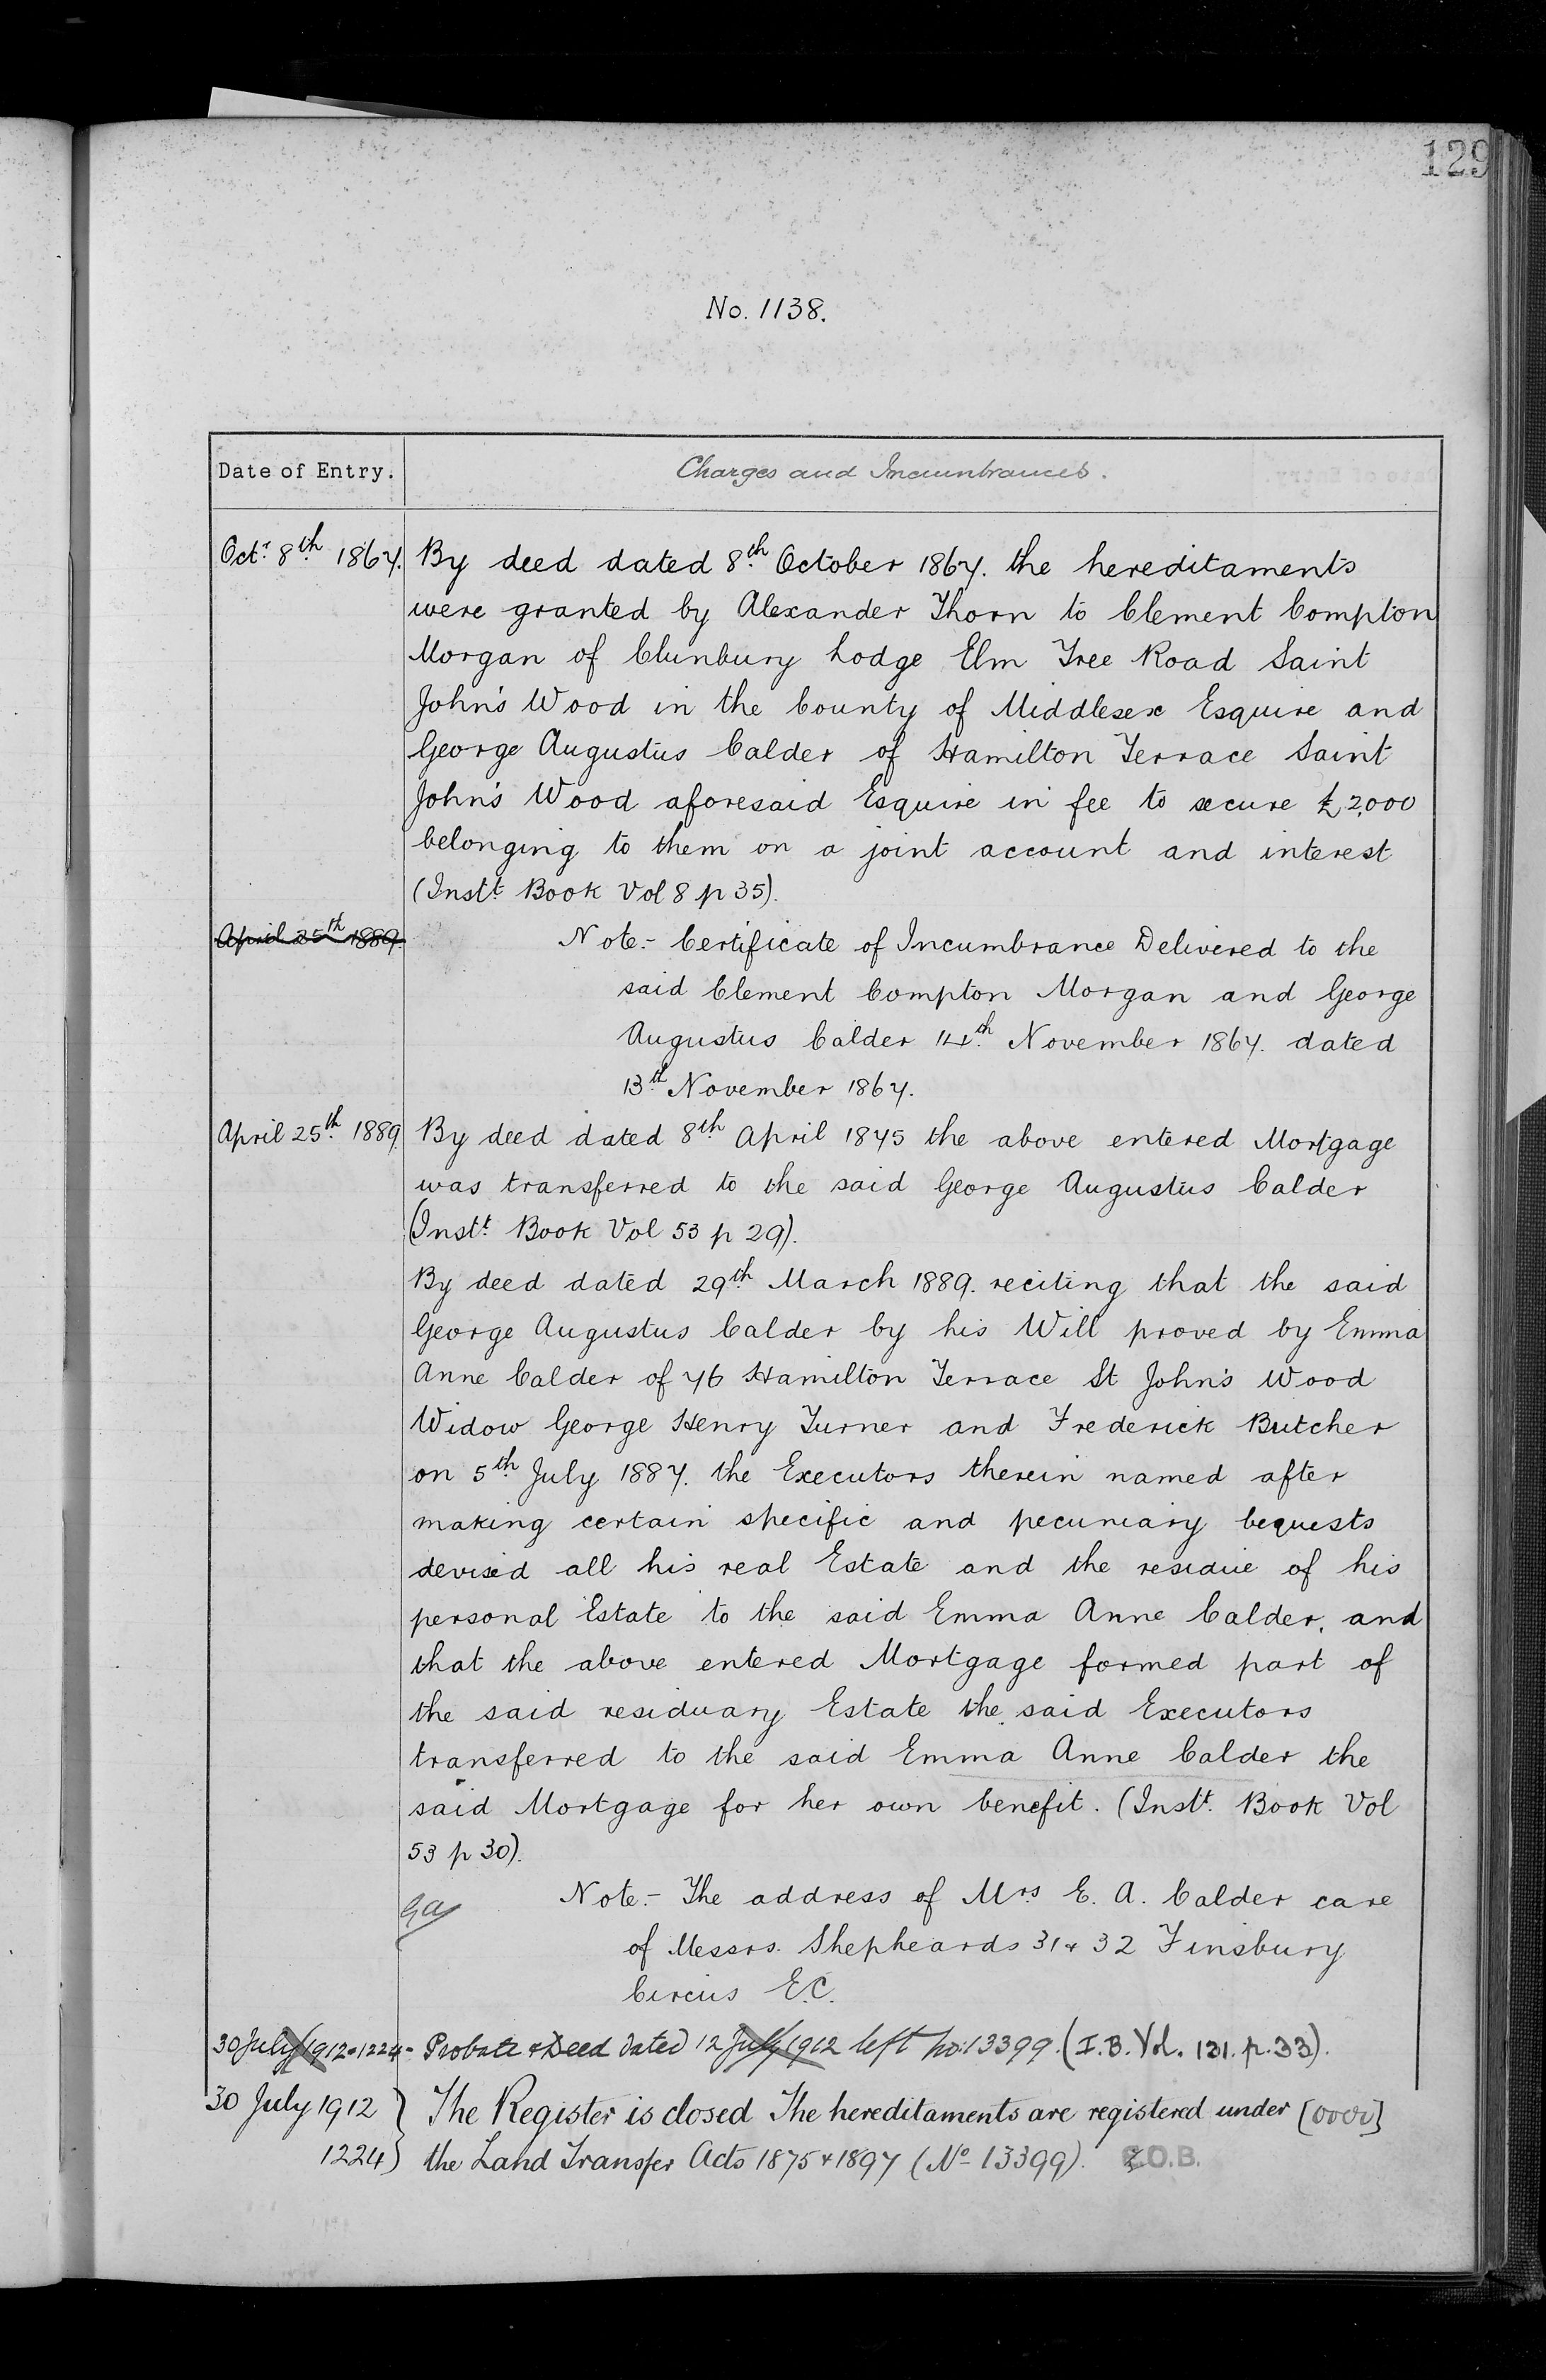 129
No. 1138.
Date of Entry. Charges and Incumbrances.
Octr 8th 1867. By deed dated 8th October 1867. the hereditaments
were granted by Alexander Thorn to Clement Compton
Morgan of Clunbury Lodge Elm Tree Road Saint
John's Wood in the County of Middlesex Esquire and
George Augustus Calder of Hamilton Terrace Saint
John's Wood aforesaid Esquire in fee to secure £2,000
belonging to them on a joint account and interest
(Instt. Book Vol 8 p 35).
April 25th 1889. Note.- Certificate of Incumbrance Delivered to the
said Clement Compton Morgan and George
Augustus Calder 14th November 1867. dated
13th November 1867.
April 25th 1889. By deed dated 8th April 1875 the above entered Mortgage
was transferred to the said George Augustus Calder
(Instt. Book Vol 53 p 29).
By deed dated 29th March 1889. reciting that the said
George Augustus Calder by his Will proved by Emma
Anne Calder of 76 Hamilton Terrace St John's Wood
Widow George Henry Turner and Frederick Butcher
on 5th July 1887. the Executors therein named after
making certain specific and pecuniary bequests
devised all his real Estate and the residue of his
personal Estate to the said Emma Anne Calder, and
that the above entered Mortgage formed part of
the said residuary Estate the said Executors
transferred to the said Emma Anne Calder the
said Mortgage for her own benefit. (Instt. Book Vol
53 p 30).
Note.- The address of Mrs E. A. Calder care
of Messrs. Shepheards 31 & 32 Finsbury
Circus E.C.
30 July 1912-1224- Probate & Deed dated 12 July 1912 left no: 13399. (I.B. Vol. 131. p. 33).
30 July 1912 } The Register is closed The hereditaments are registered under
1224 } the Land Transfer Acts 1875 & 1897 (No 13399). O.B.